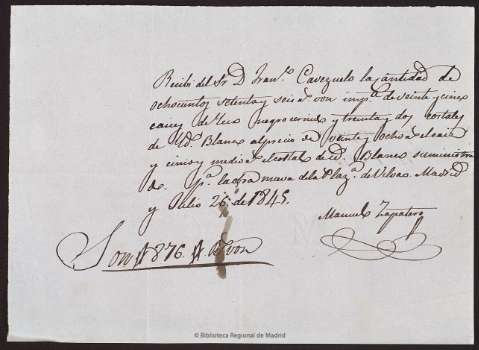 Recibí del Sr. D. Fran.co Cavezuelo la cantidad de
ochocientos setenta y seis r.s von imp.e de veinte y cinco
caices de yeso negro cernido y treinta y dos costales
de Yd. Blanco al precio de veinte y ocho el caiz
y cinco y medio el costal de Yd. Blanco suministra
do p.a la obra nueva de la Plaz.a de Madrid
y Julio 26 de 1845.
Manuel Zapatero
Son # 876 # r.s von
© Biblioteca Regional de Madrid